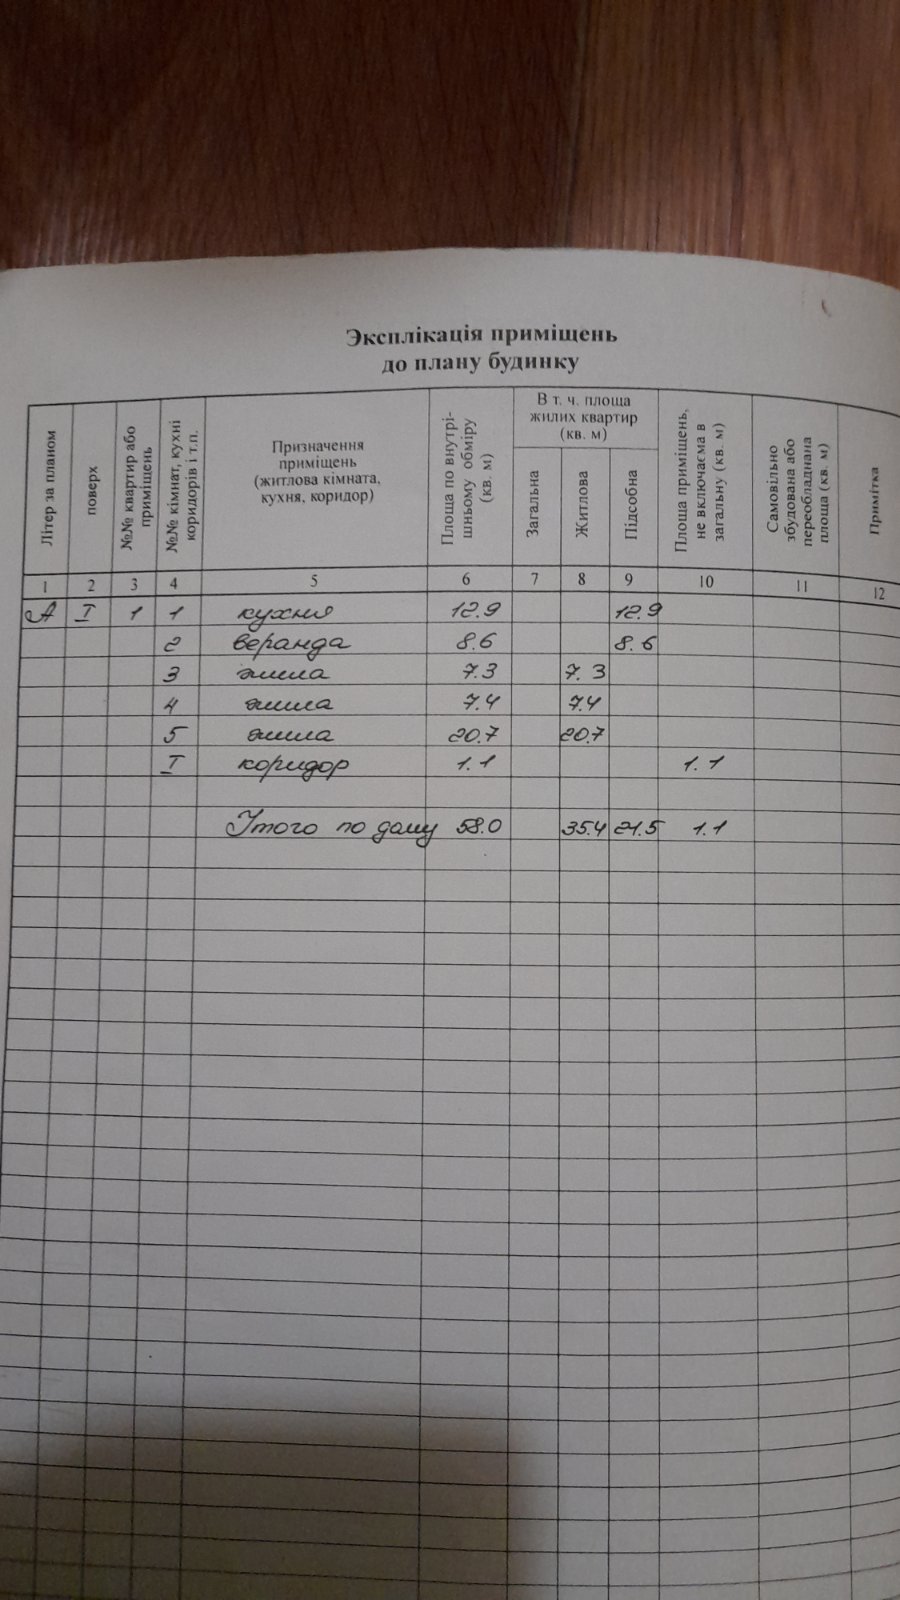 Эксплікація приміщень
до плану будинку
Літер за планом
поверх
№№ квартир або приміщень
№№ кімнат, кухні коридорів і т.п.
Призначення
приміщень
(житлова кімната,
кухня, коридор)
Площа по внутрі-
шньому обміру
(кв. м)
В т. ч. площа
жилих квартир
(кв. м)
Загальна
Житлова
Підсобна
Площа приміщень,
не включаєма в
загальну (кв. м)
Самовільно
збудована або
переобладнана
площа (кв. м)
Примітка
1 2 3 4 5 6 7 8 9 10 11 12
А I 1 1 кухния 12.9 12.9
2 веранда 8.6 8.6
3 жила 7.3 7.3
4 жила 7.4 7.4
5 жила 20.7 20.7
I коридор 1.1 1.1
Итого по дому 58.0 35.4 21.5 1.1